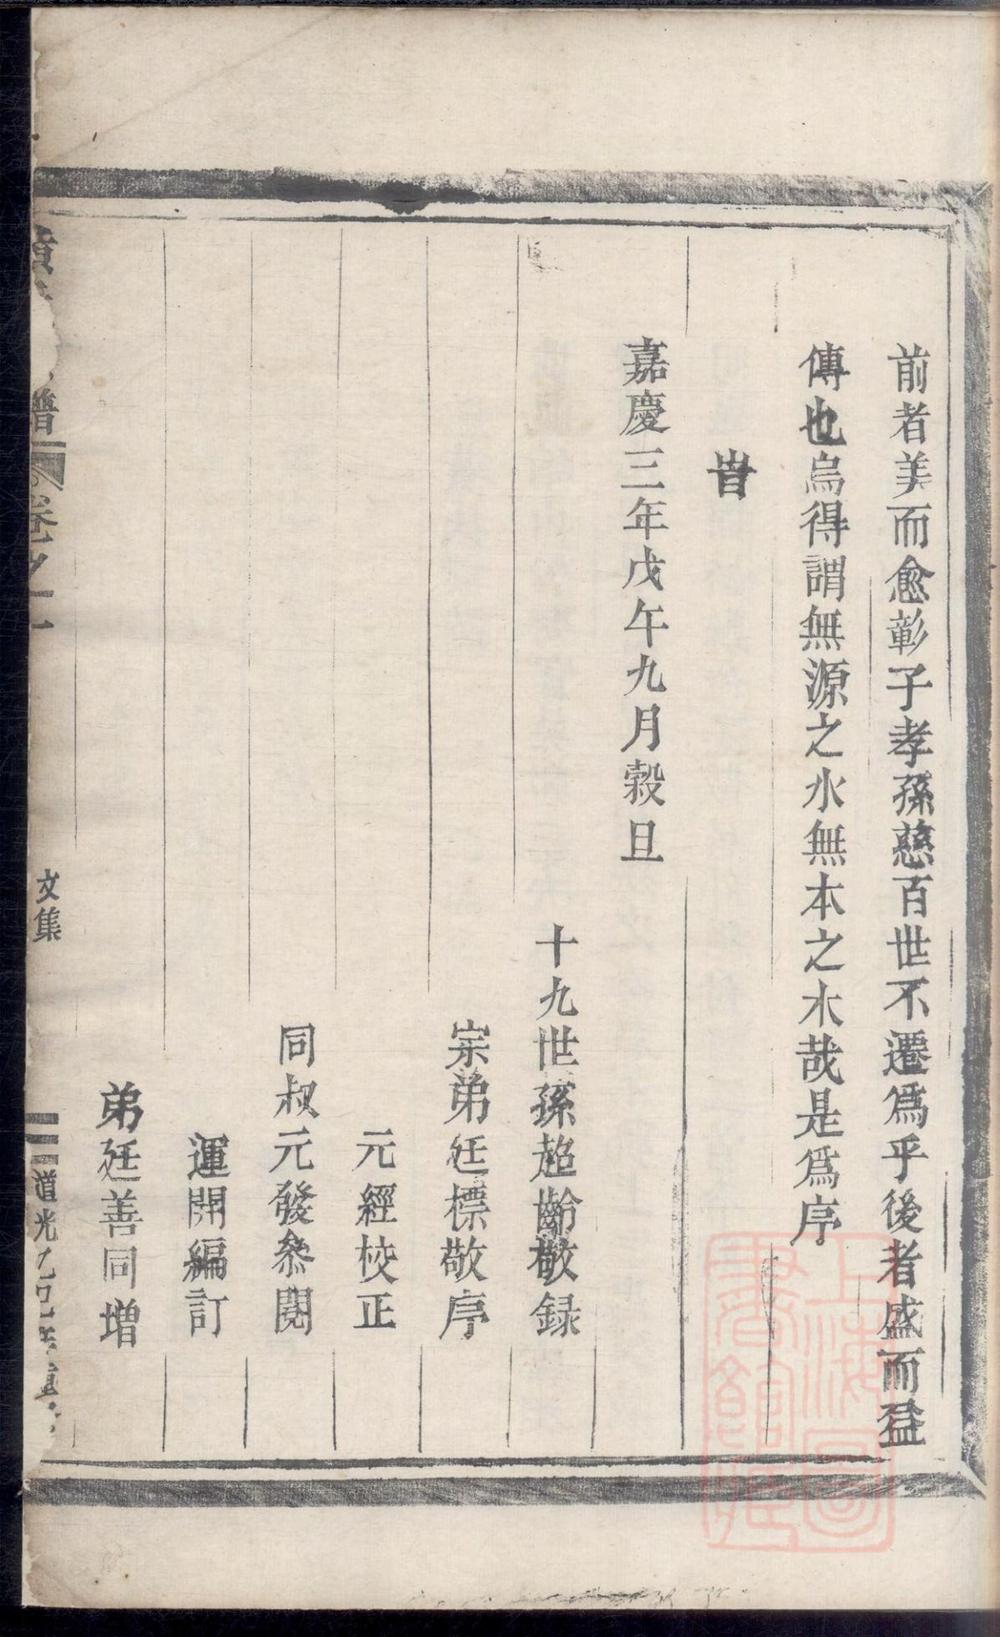 前者美而愈彰子孝孫慈百世不遷爲乎後者盛而益
傳也烏得謂無源之水無本之木哉是爲序
旹
嘉慶三年戊午九月穀旦
十九世孫超齡敬録
宗弟廷標敬序
元經校正
同叔元發叅閱
運開編訂
弟廷善同增
譜
卷之一
文集
道光乙巳年重
上海圖書館藏